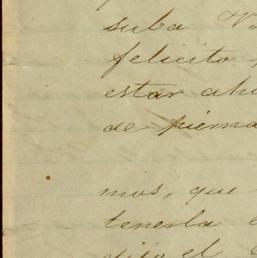 suba V.
felicito
estar ah
de pierna
mos, que
tenerla
dijo el